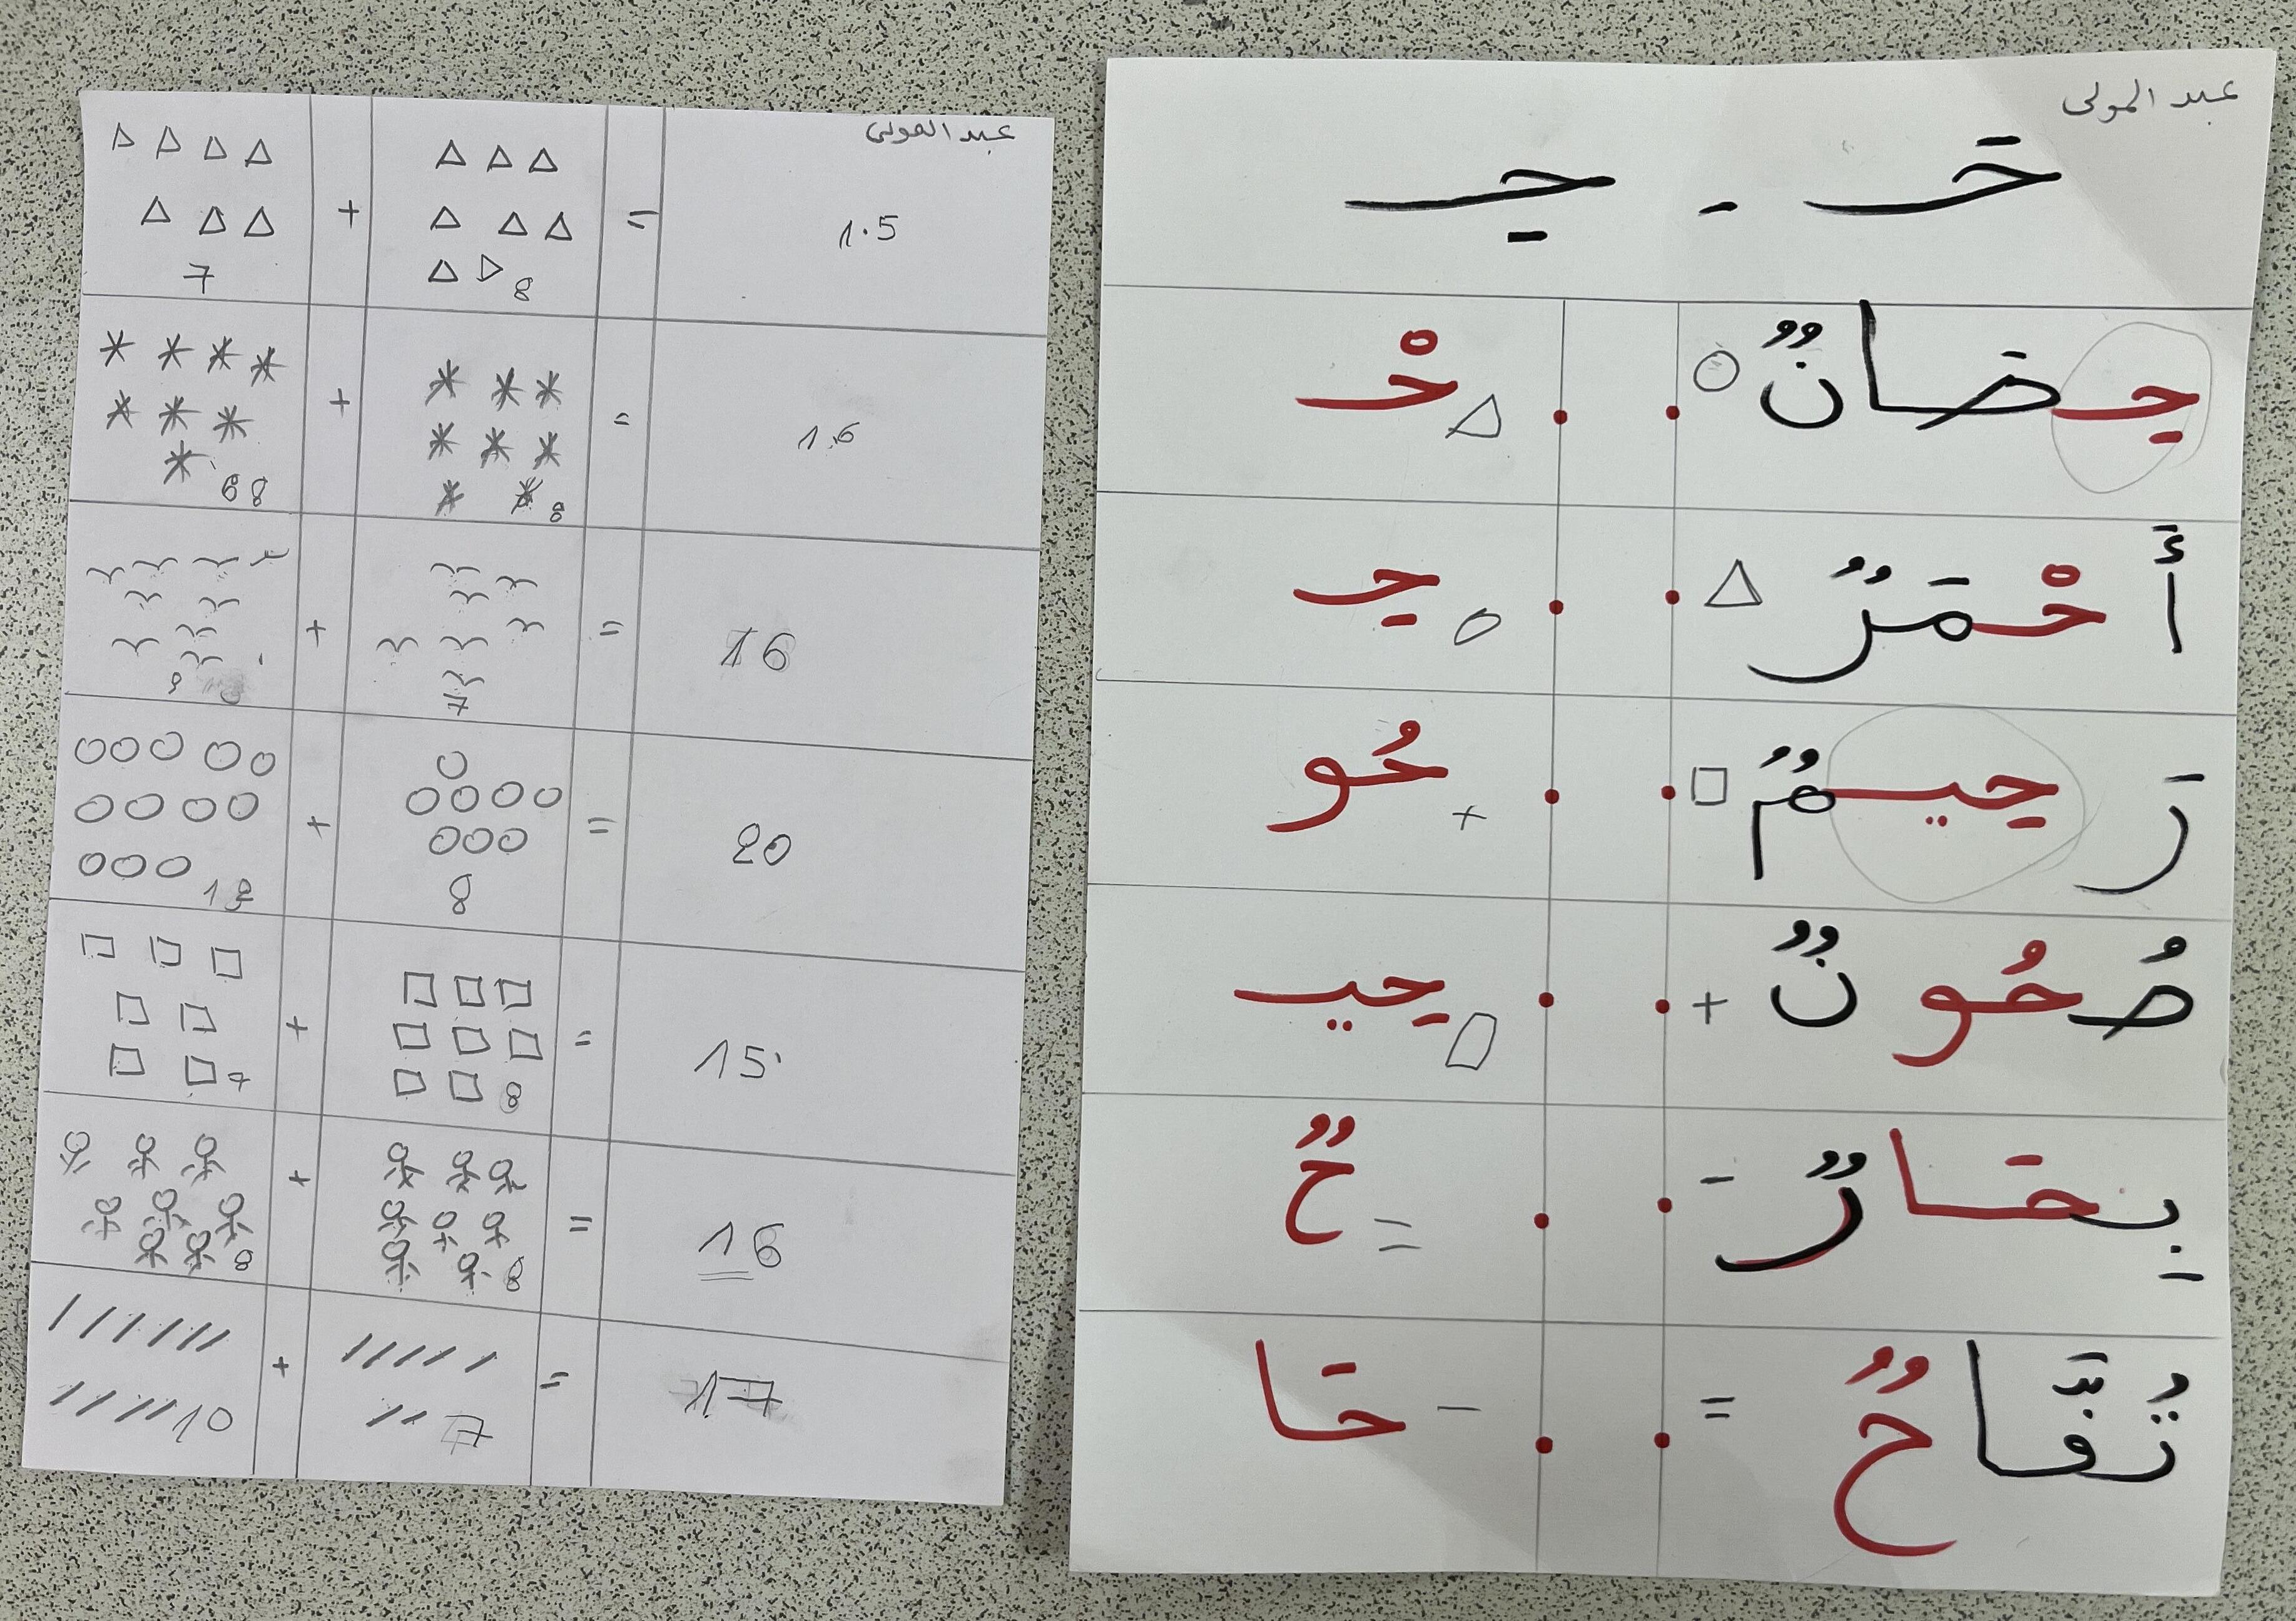 عبد المولى
7 + 8 = 1.5
8 + 8 = 1.6
+ 7 = 16
+ 8 = 20
7 + 8 = 15
8 + 8 = 16
10 + 7 = 17
عبد المولى
حَـ - حِـ
حِصَانٌ حْـ
أَحْمَرٌ حِـ
رَحِيمٌ حُو +
صُحُونٌ + حِيـ
بِحَارٌ - حٌ =
تُفَّاحٌ = حَا -